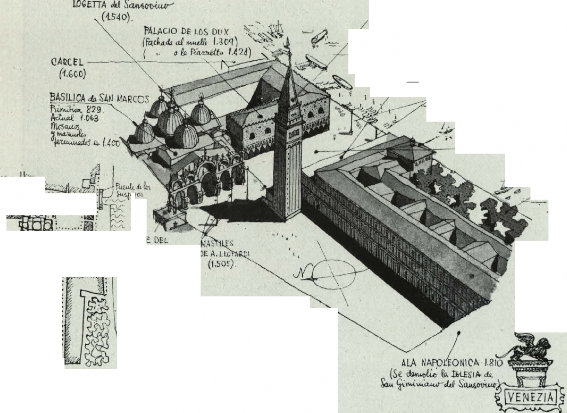 LOGETTA del Sansovino
(1540).
PALACIO DE LOS DUX
(Fachada al muelle 1.309)
( " a la Piazzetta 1.424)
CARCEL
(1.600)
BASILICA de SAN MARCOS
Primitiva 829.
Actual 1.063
Mosaicos
y marmoles
posteriores a 1.400
Puente de los
Suspiros
E DEL
MASTILES
DE A. LEOPARDI
(1.505).
N
ALA NAPOLEONICA 1.810
(Se demolió la IGLESIA de
San Giminiano del Sansovino)
VENEZIA